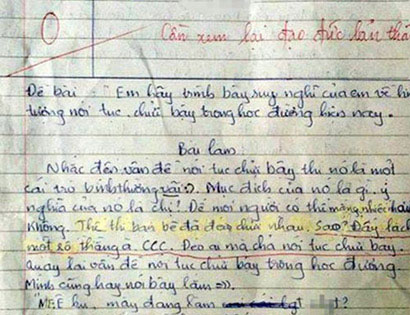 O
Cần xem lại đạo đức bản thâ
Đề bài : "Em hãy trình bày suy nghĩ của em về hiệ
tượng nói tục, chửi bậy trong học đường hiện nay.
Bài làm
Nhắc đến vấn đề nói tục chửi bậy thì nó là một
cái trò bình thường vãi =). Mục đích của nó là gì, ý
nghĩa của nó là chi? Để mọi người có thể mắng nhiếc
không. Thế thì bạn bè đã đéo chửi nhau. Sao? Đấy là
một số thằng à. CCC. Đéo ai mà chả nói tục chửi bậy.
Quay lại vấn đề nói tục chửi bậy trong học đường.
Mình cũng hay nói bậy lắm =)).
mày đang làm